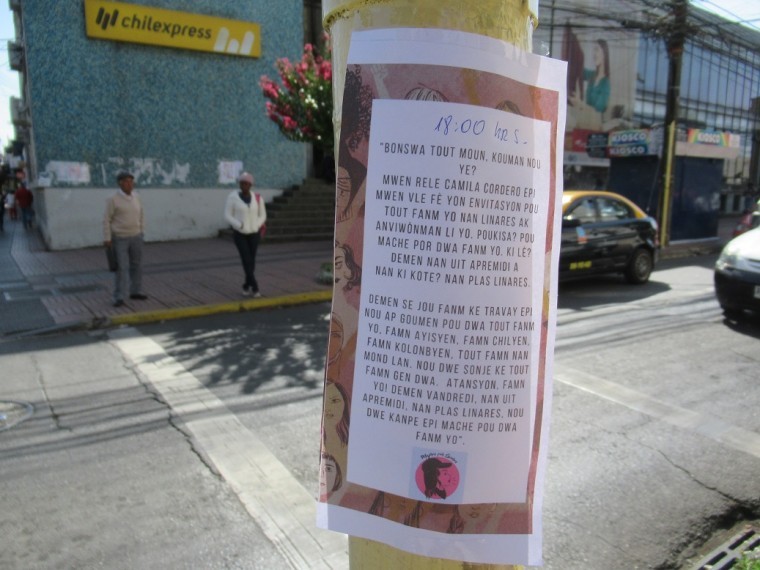 chilexpress
18:00 hrs.
"BONSWA TOUT MOUN, KOUMAN NOU
YE?
MWEN RELE CAMILA CORDERO EPI
MWEN VLE FÈ YON ENVITASYON POU
TOUT FANM YO NAN LINARES AK
ANVIWÒNMAN LI YO. POUKISA? POU
MACHE POR DWA FANM YO. KI LÈ?
DEMEN NAN UIT APREMIDI A
NAN KI KOTE? NAN PLAS LINARES.
DEMEN SE JOU FANM KE TRAVAY EPI
NOU AP GOUMEN POU DWA TOUT FANM
YO, FAMN AYISYEN, FAMN CHILYEN,
FAMN KOLONBYEN, TOUT FAMN NAN
MOND LAN. NOU DWE SONJE KE TOUT
FAMN GEN DWA. ATANSYON, FAMN
YO! DEMEN VANDREDI, NAN UIT
APREMIDI, NAN PLAS LINARES, NOU
DWE KANPE EPI MACHE POU DWA
FANM YO".
KIOSCO
KIOSCO
KIOSCO